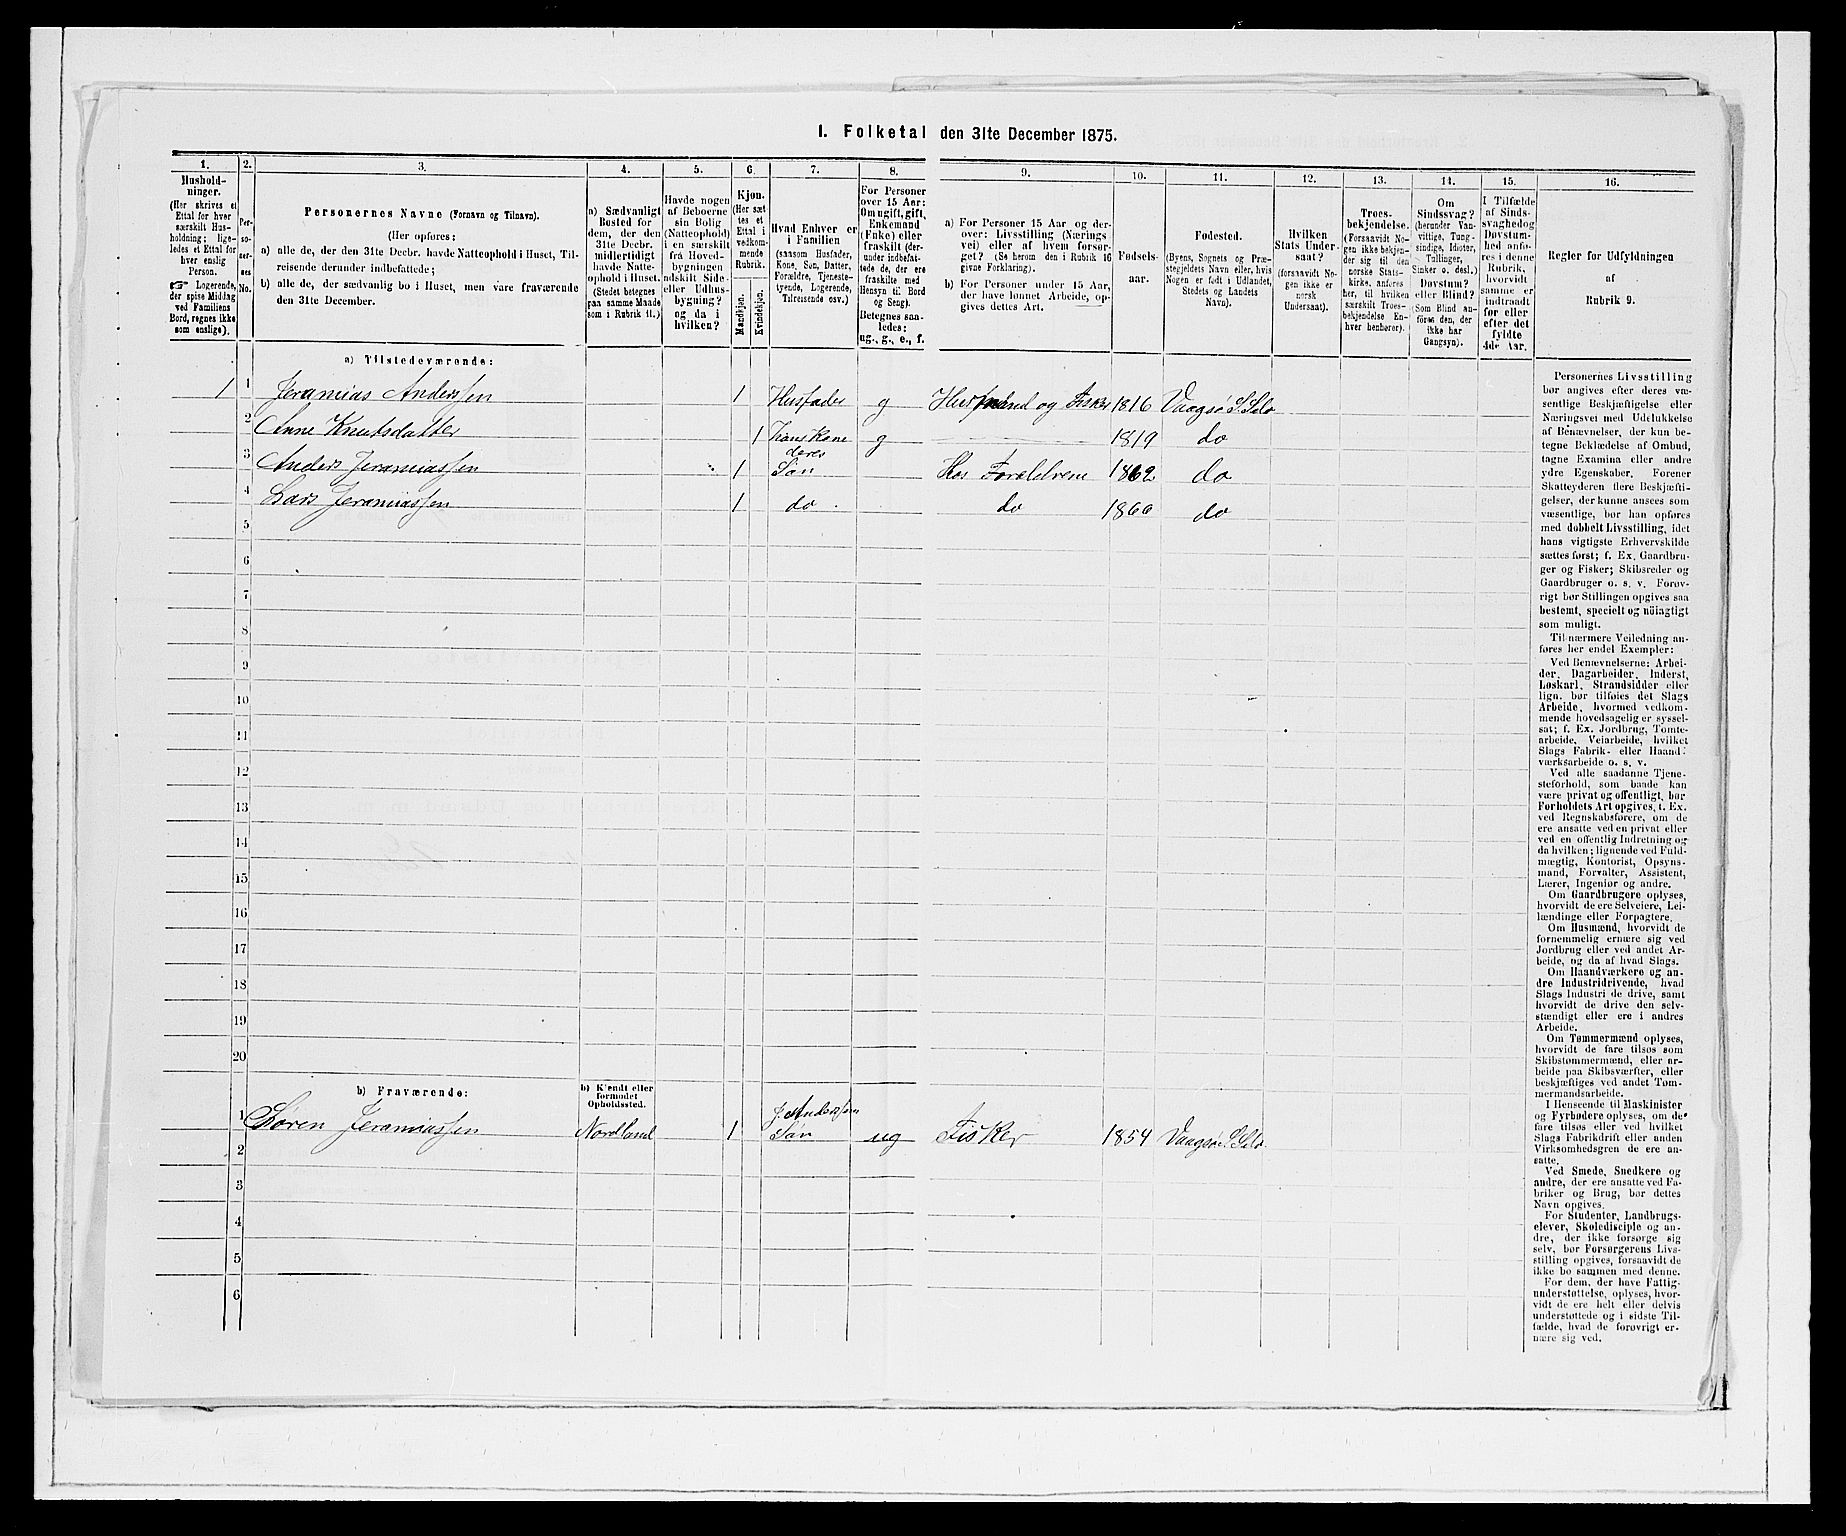 I. Folketal den 31te December 1875.
1. 2. 3. 4. 5. 6. 7. 8. 9. 10. 11. 12. 13. 14. 15. 16.
Hushold-
ninger.
(Her skrives et
Ettal for hver
særskilt Hus-
holdning; lige-
ledes et Ettal for
hver enslig
Person.
☞ Logerende,
der spise Middag
ved Familiens
Bord, regnes ikke
som enslige).
Per-
so-
ner-
nes
No.
Personernes Navne (Fornavn og Tilnavn).
(Her opføres:
a) alle de, der den 31te Decbr. havde Natteophold i Huset, Til-
reisende derunder indbefattede;
b) alle de, der sædvanlig bo i Huset, men vare fraværende
den 31te December.
a) Sædvanligt
Bosted for
dem, der den
31te Decbr.
midlertidigt
havde Natte-
ophold i Huset.
(Stedet betegnes
paa samme Maade
som i Rubrik 11.)
Havde nogen
af Beboerne
sin Bolig
(Natteophold)
i en særskilt
fra Hoved-
bygningen
adskilt Side-
eller Udhus-
bygning?
og da i
hvilken?
Kjøn.
(Her sæt
tes et
Ettal i
vedkom-
mende
Rubrik.
Mandkjøn.
Kvindekjøn.
Hvad Enhver er
i Familien
(saasom Husfader,
Kone, Søn, Datter,
Forældre, Tjeneste-
tyende, Logerende,
Tilreisende osv.)
For Personer
over 15 Aar:
Om ugift, gift,
Enkemand
(Enke) eller
fraskilt (der-
under indbefat-
tede de, der ere
fraskilte med
Hensyn til Bord
og Seng).
Betegnes saa-
ledes:
ug., g., e., f.
a) For Personer 15 Aar og der-
over: Livsstilling (Nærings
vei) eller af hvem forsør-
get? (Se herom den i Rubrik 16
givne Forklaring).
b) For Personer under 15 Aar,
der have lønnet Arbeide, op-
gives dettes Art.
Fødsels-
aar.
Fødested.
(Byens, Sognets og Præ-
stegjeldets Navn eller, hvis
Nogen er født i Udlandet,
Stedets og Landets
Navn).
Hvilken
Stats Under-
saat?
(forsaavidt No-
gen ikke er
norsk
Undersaat).
Troes-
bekjendelse.
(Forsaavidt No-
gen ikke bekjen-
der sig til den
norske Stats-
kirke, anføres
her, til hvilken
særskilt Troes-
bekjendelse En-
hver henhører).
Om
Sindssvag?
(herunder Van-
vittige, Tung-
sindige, Idioter,
Tullinger,
Sinker o. desl.)
Døvstum?
eller Blind?
(Som Blind an-
føres den, der
ikke har
Gangsyn).
I Tilfælde
af Sinds-
svaghed og
Døvstum-
hed anfø-
res i denne
Rubrik,
hvorvidt
samme er
indtraadt
før eller
efter det
fyldte
4de Aar.
Regler for Udfyldningen
af
Rubrik 9.
a) Tilstedeværende:
1 1 Jeramias Anderssen 1 Husfader g Husmand og Fisker 1816 Vaagsø S. Selø
2 Anne Knutsdatter 1 Hans Kone g 1819 do
3 Anders Jeramiassen 1 deres Søn Hos Forældrene 1862 do
4 Lars Jeramiassen 1 do do 1860 do
5
6
7
8
9
10
11
12
13
14
15
16
17
18
19
20
b) Fraværende:
b) Kjendt eller
formodet
Opholdssted.
1 Søren Jeramiassen Nordland 1 J. Anderssen Søn ug Fisker 1854 Vaagsø S. Selø
2
3
4
5
6
Personernes Livsstilling
bør angives efter deres væ-
sentlige Beskjæftigelse eller
Næringsvei med Udelukkelse
af Benævnelser, der kun be-
tegne Beklædelse af Ombud,
tagne Examina eller andre
ydre Egenskaber. Forener
Skatteyderen flere Beskjæfti-
gelser, der kunne ansees som
væsentlige, bør han opføres
med dobbelt Livsstilling, idet
hans vigtigste Erhvervskilde
sættes først; f. Ex. Gaardbru-
ger og Fisker; Skibsreder og
Gaardbruger o. s. v. Forøv-
rigt bør Stillingen opgives saa
bestemt, specielt og nøiagtigt
som muligt.
Til nærmere Veiledning an-
føres her endel Exempler:
Ved Benævnelserne: Arbei-
der, Dagarbeider, Inderst,
Løskarl, Strandsidder eller
lign. bør tilføies det Slags
Arbeide, hvormed vedkom-
mende hovedsagelig er syssel-
sat; f. Ex. Jordbrug, Tomte-
arbeide, Veiarbeide, hvilket
Slags Fabrik- eller Haand-
værksarbeide o. s. v.
Ved alle saadanne Tjene-
steforhold, som baade kan
være privat og offentligt, bør
Forholdets Art opgives, t. Ex.
ved Regnskabsførere, om de
ere ansatte ved en privat eller
ved en offentlig Indretning og
da hvilken; lignende ved Fuld-
mægtig, Kontorist, Opsyns-
mand, Forvalter, Assistent,
Lærer, Ingeniør og andre.
Om Gaardbrugere oplyses,
hvorvidt de ere Selveiere, Lei-
lændinge eller Forpagtere.
Om Husmænd, hvorvidt de
fornemmelig ernære sig ved
Jordbrug eller ved andet Ar-
beide, og da af hvad Slags.
Om Haandværkere og an-
dre Industridrivende, hvad
Slags Industri de drive, samt
hvorvidt de drive den selv-
stændigt eller ere i andres
Arbeide.
Om Tømmermænd oplyses,
hvorvidt de fare tilsøs som
Skibstømmermænd, eller ar-
beide paa Skibsværfter, eller
beskjæftiges ved andet Tøm-
mermandsarbeide.
I Henseende til Maskinister
og Fyrbødere oplyses, om de
fare tilsøs eller ved hvilket
Slags Fabrikdrift eller anden
Virksomhedsgren de ere an-
satte.
Ved Smede, Snedkere og
andre, der ere ansatte ved Fa-
briker og Brug, bør dettes
Navn opgives.
For Studenter, Landbrugs-
elever, Skoledisciple og an-
dre, der ikke forsørge sig
selv, bør Forsørgerens Livs-
stilling opgives, forsaavidt de
ikke bo sammen med denne.
For dem, der have Fattig-
understøttelse, oplyses, hvor-
vidt de ere helt eller delvis
understøttede og i sidste Til-
fælde, hvad de forøvrigt er-
nære sig ved.